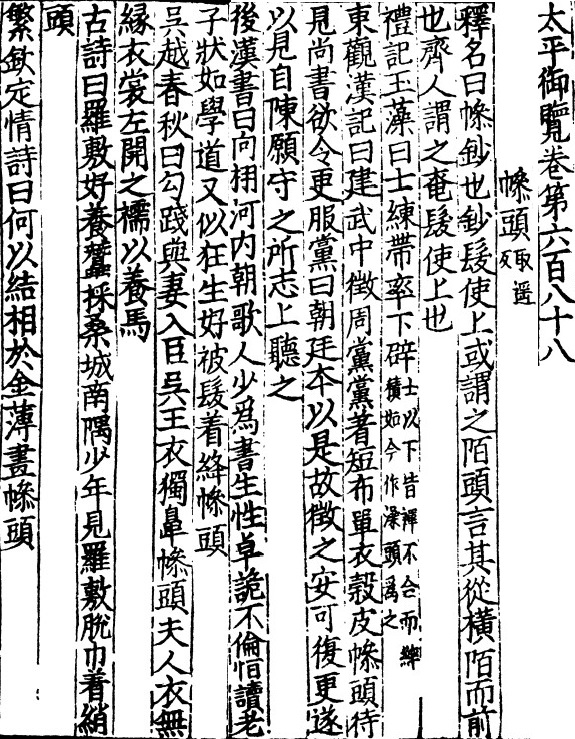 太平御覽卷第六百八十八
幧頭
釋名曰幧鈔也鈔髮使上或謂之陌頭言其從橫陌而前
也齊人謂之㡋髮使上也
禮記玉藻曰士練帶率下辟士以下皆禪不合而繂積如今作澡頭爲之
東觀漢記曰建武中徵周黨黨著短布單衣榖皮幧頭待
見尚書欲令更服黨曰朝廷本以是故徵之安可復更遂
以見自陳願守之所志上聽之
後漢書曰向栩河内朝歌人少爲書生性卓詭不倫恒讀老
子狀如學道又似狂生好被髮着絳幧頭
吴越春秋曰勾踐與妻入臣吴王衣獨鼻幧頭夫人衣無
緣衣裳左開之襦以養馬
古詩曰羅敷好養蠶採桑城南隅少年見羅敷脫巾着綃
頭
繁欽定情詩曰何以結相於金薄畫幧頭